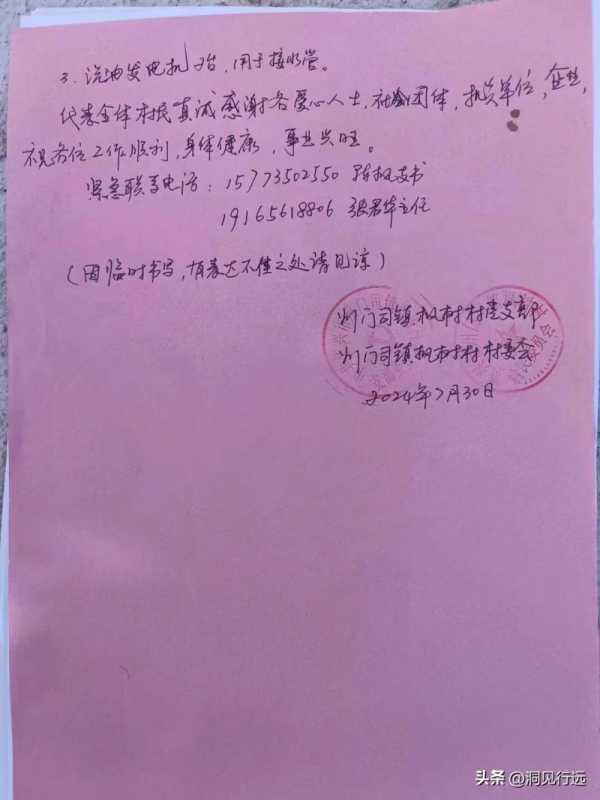 3. 汽油发电机1台，用于接水管。
代表全体村民真诚感谢各爱心人士，社会团体，机关单位，企业，
祝各位工作顺利，身体健康，事业兴旺。
紧急联系电话：15773502550 陈枫支书
19165618806 张君华主任
（因临时书写，有表达不佳之处请见谅）
州门司镇枫树村村党支部
州门司镇枫树村村委会
2024年7月30日
头条 @洞见行远